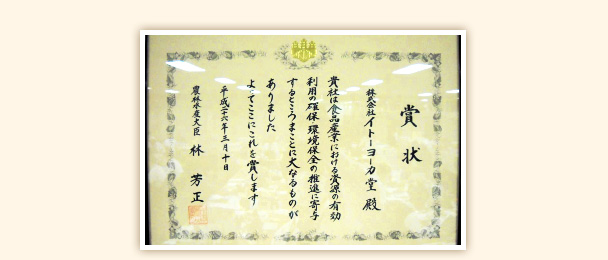 賞状
株式会社イトーヨーカ堂 殿
貴社は食品産業における資源の有効
利用の確保 環境保全の推進に寄与
するところまことに大なるものが
ありました
よってここにこれを賞します
平成二六年三月十日
農林水産大臣 林 芳正